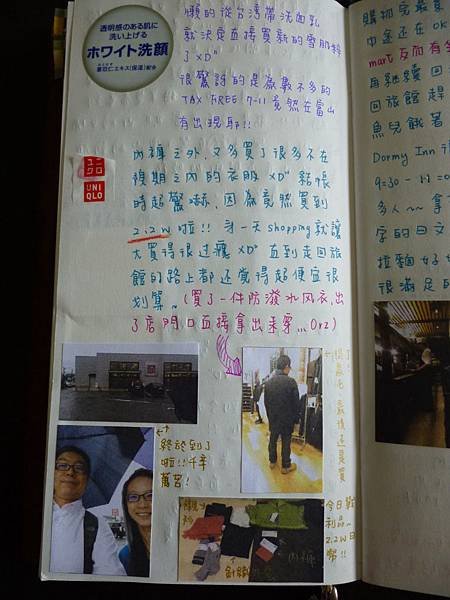 透明感のある肌に
洗い上げる
ホワイト洗顔
薏苡仁エキス(保湿)配合
懶的從台湾帶洗面乳
就決定直接買新的雪肌粹
了 XD"
很驚訝的是為數不多的
TAX FREE 7-11 竟然在富山
有出現耶!!
ユニ
クロ
UNI
QLO
內褲之外,又多買了很多不在
預期之內的衣服 XD" 結帳
時超驚嚇,因為竟然買到
2.2W 啦!! 才一天 shopping 就讓
大買得很过癮 XD" 直到走回旅
館的路上都还覚得超便宜很
划算。(買了一件防潑水风衣,出
了店門口直接拿出来穿... Orz)
終於到了
啦!! 千辛
萬苦!
最後还是買
了
今日戰
利品~
2.2W日
幣!!
購物完最
中途还在 OK
mart 反而有
再継續回
回旅館 趕
魚兒餓著
Dormy Inn 很
9:30 - 11:0
多人~~ 拿
字的日文
拉麵好
很滿足的